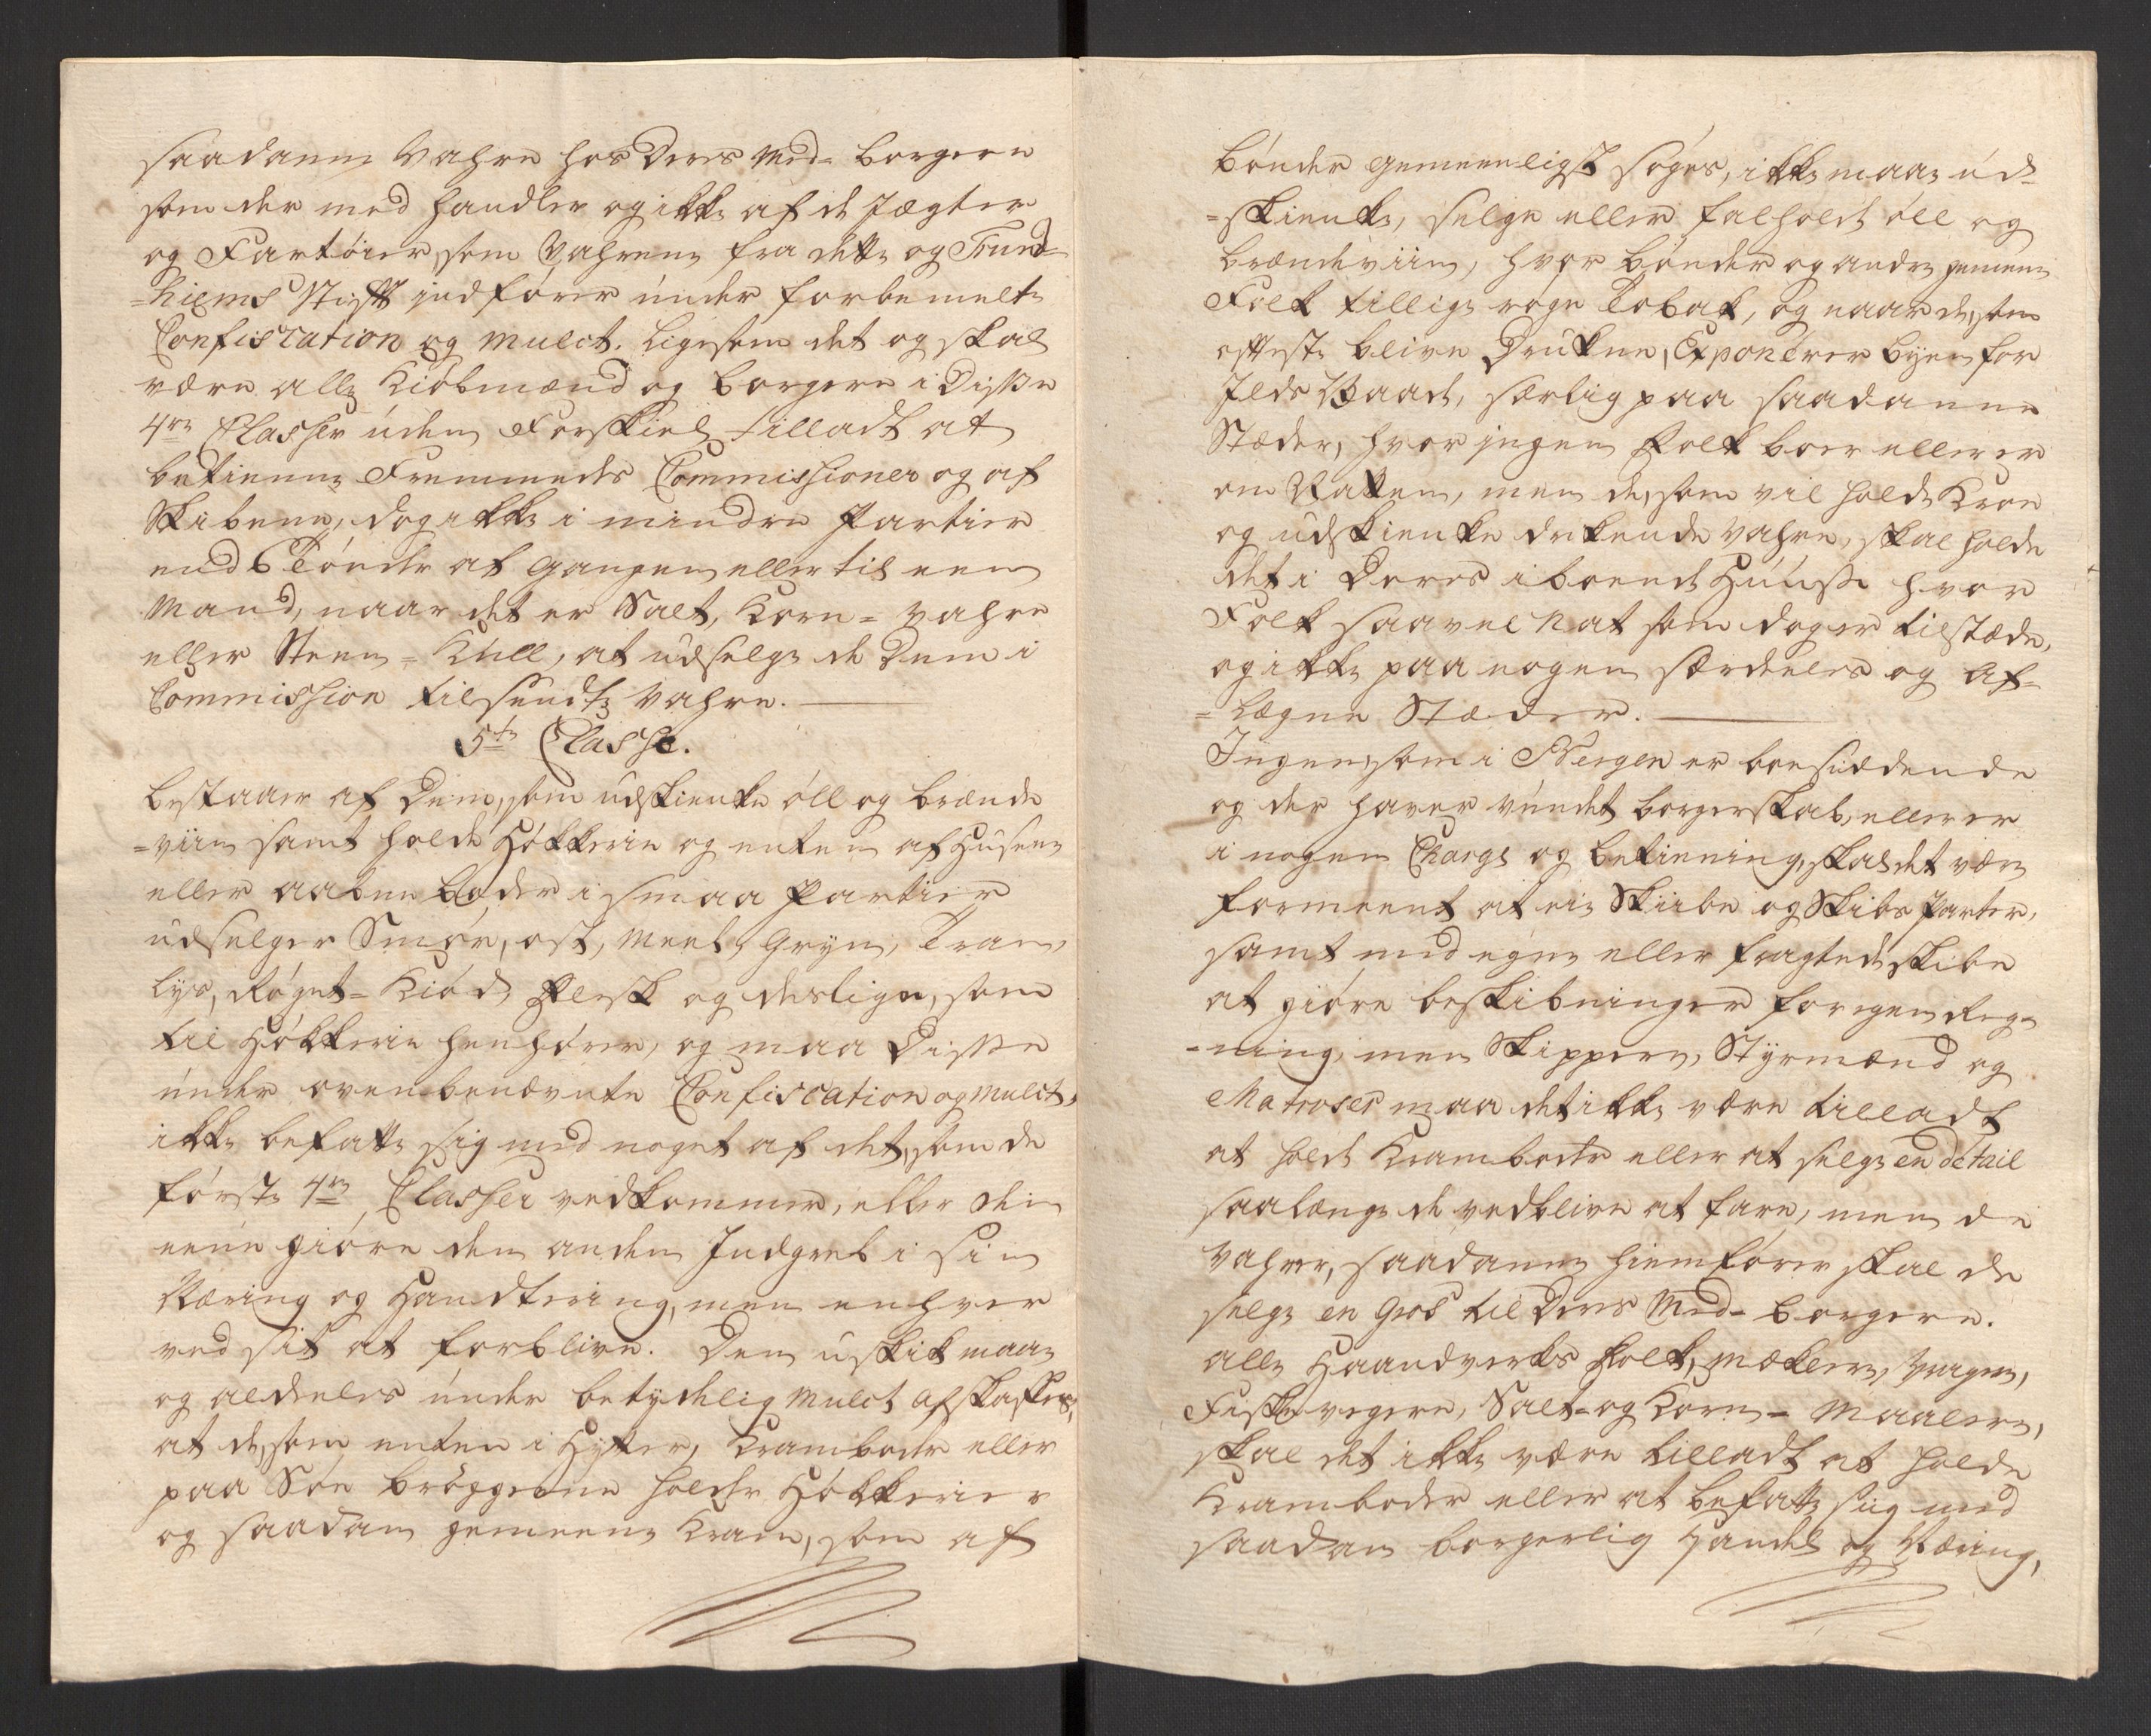 saadanne Vahre hos Deres Med= borgere
som der med handler og ikke af de Jægter
og Fartöier, som Vahrene fra dette og Trund=
=hiems Stift indförer under forbemelte
Confiscation og Mulct. Ligesom det og skal
være alle Kiöbmænd og borgere i Disse
4re Classer uden Forskiel tilladt at
betienne Fremmedes Commissioner og af
Skibene, dog ikke i mindre Partier
end 6 Tönder at Gangen eller til een
Mand, naar det er Salt, Korn= Vahre
eller Steen= Kull, at udselge de Dem i
Commission tilsendte Vahre.
5te Classe.
bestaaer af Dem, som udskienke öll og brænde
=viin samt holde Hökkerie og enten af Husene
eller aabne Boder i smaa Partier
udselger Smör, ost, Meel, Gryn, Tran,
lys, Röget= Kiöd, Flesk og deslige, som
til Hökkerie henhörer, og maa Disse
under ovenbenævnte Confiscation og Mulct,
ikke befatte sig med noget af det, som de
förste 4re Classer vedkommer, eller den
eene giöre den anden Indgreb i sin
Næring og Handtering, men enhver
ved sit at forblive. Den uskik maa
og aldeeles under betydelig Mulct afskaffes,
at de, som enten i Hytter, Kramboder eller
paa Söe bröggerne holder Hökkerier
og saadan gemeene Kram, som af
bönder gemeenligst söges, ikke maa ud=
=skienke, selge eller falholde öll og
brændeviin, hvor bönder og andre gemeene
Folk tillige röge Tobak, og naar de, som
oftest blive Drukne, Exponerer byen for
Ilds Vaade, særlig paa saadanne
Stæder, hvor ingen Folk boer eller er
om Natten, men de, som vil holde Kroe
og udskienke drikende Vahre, skal holde
det i Deres iboende Huuse hvor
Folk saavel Nat som dag er tilstæde,
og ikke paa nogen særdeeles og Af=
=lægne Stæder.
Ingen, som i Bergen er boesiddende
og der haver vundet borgerskab, eller er
i nogen Charge og betiening, skal det være
formeent at eie Skiibe og Skibs Parter,
samt med egne eller fragtede skibe
at giöre beskibninger for egen Reg=
=ning, men Skippere, Styrmænd og
Matroser maa det ikke være tilladt
at holde Kramboder eller at selge en detail
saalænge de vedblive at fare, men de
Vahrer, saadanne hiemförer skal de
selge en Gros til Deres Med= borgere.
alle Haandverks Folk, Mæklere, Vragere,
Fiskevegere, Salt= og Korn= Maalere,
skal det ikke være tilladt at holde
Kramboder eller at befatte sig med
saadan borgerlig Handel og Næring,